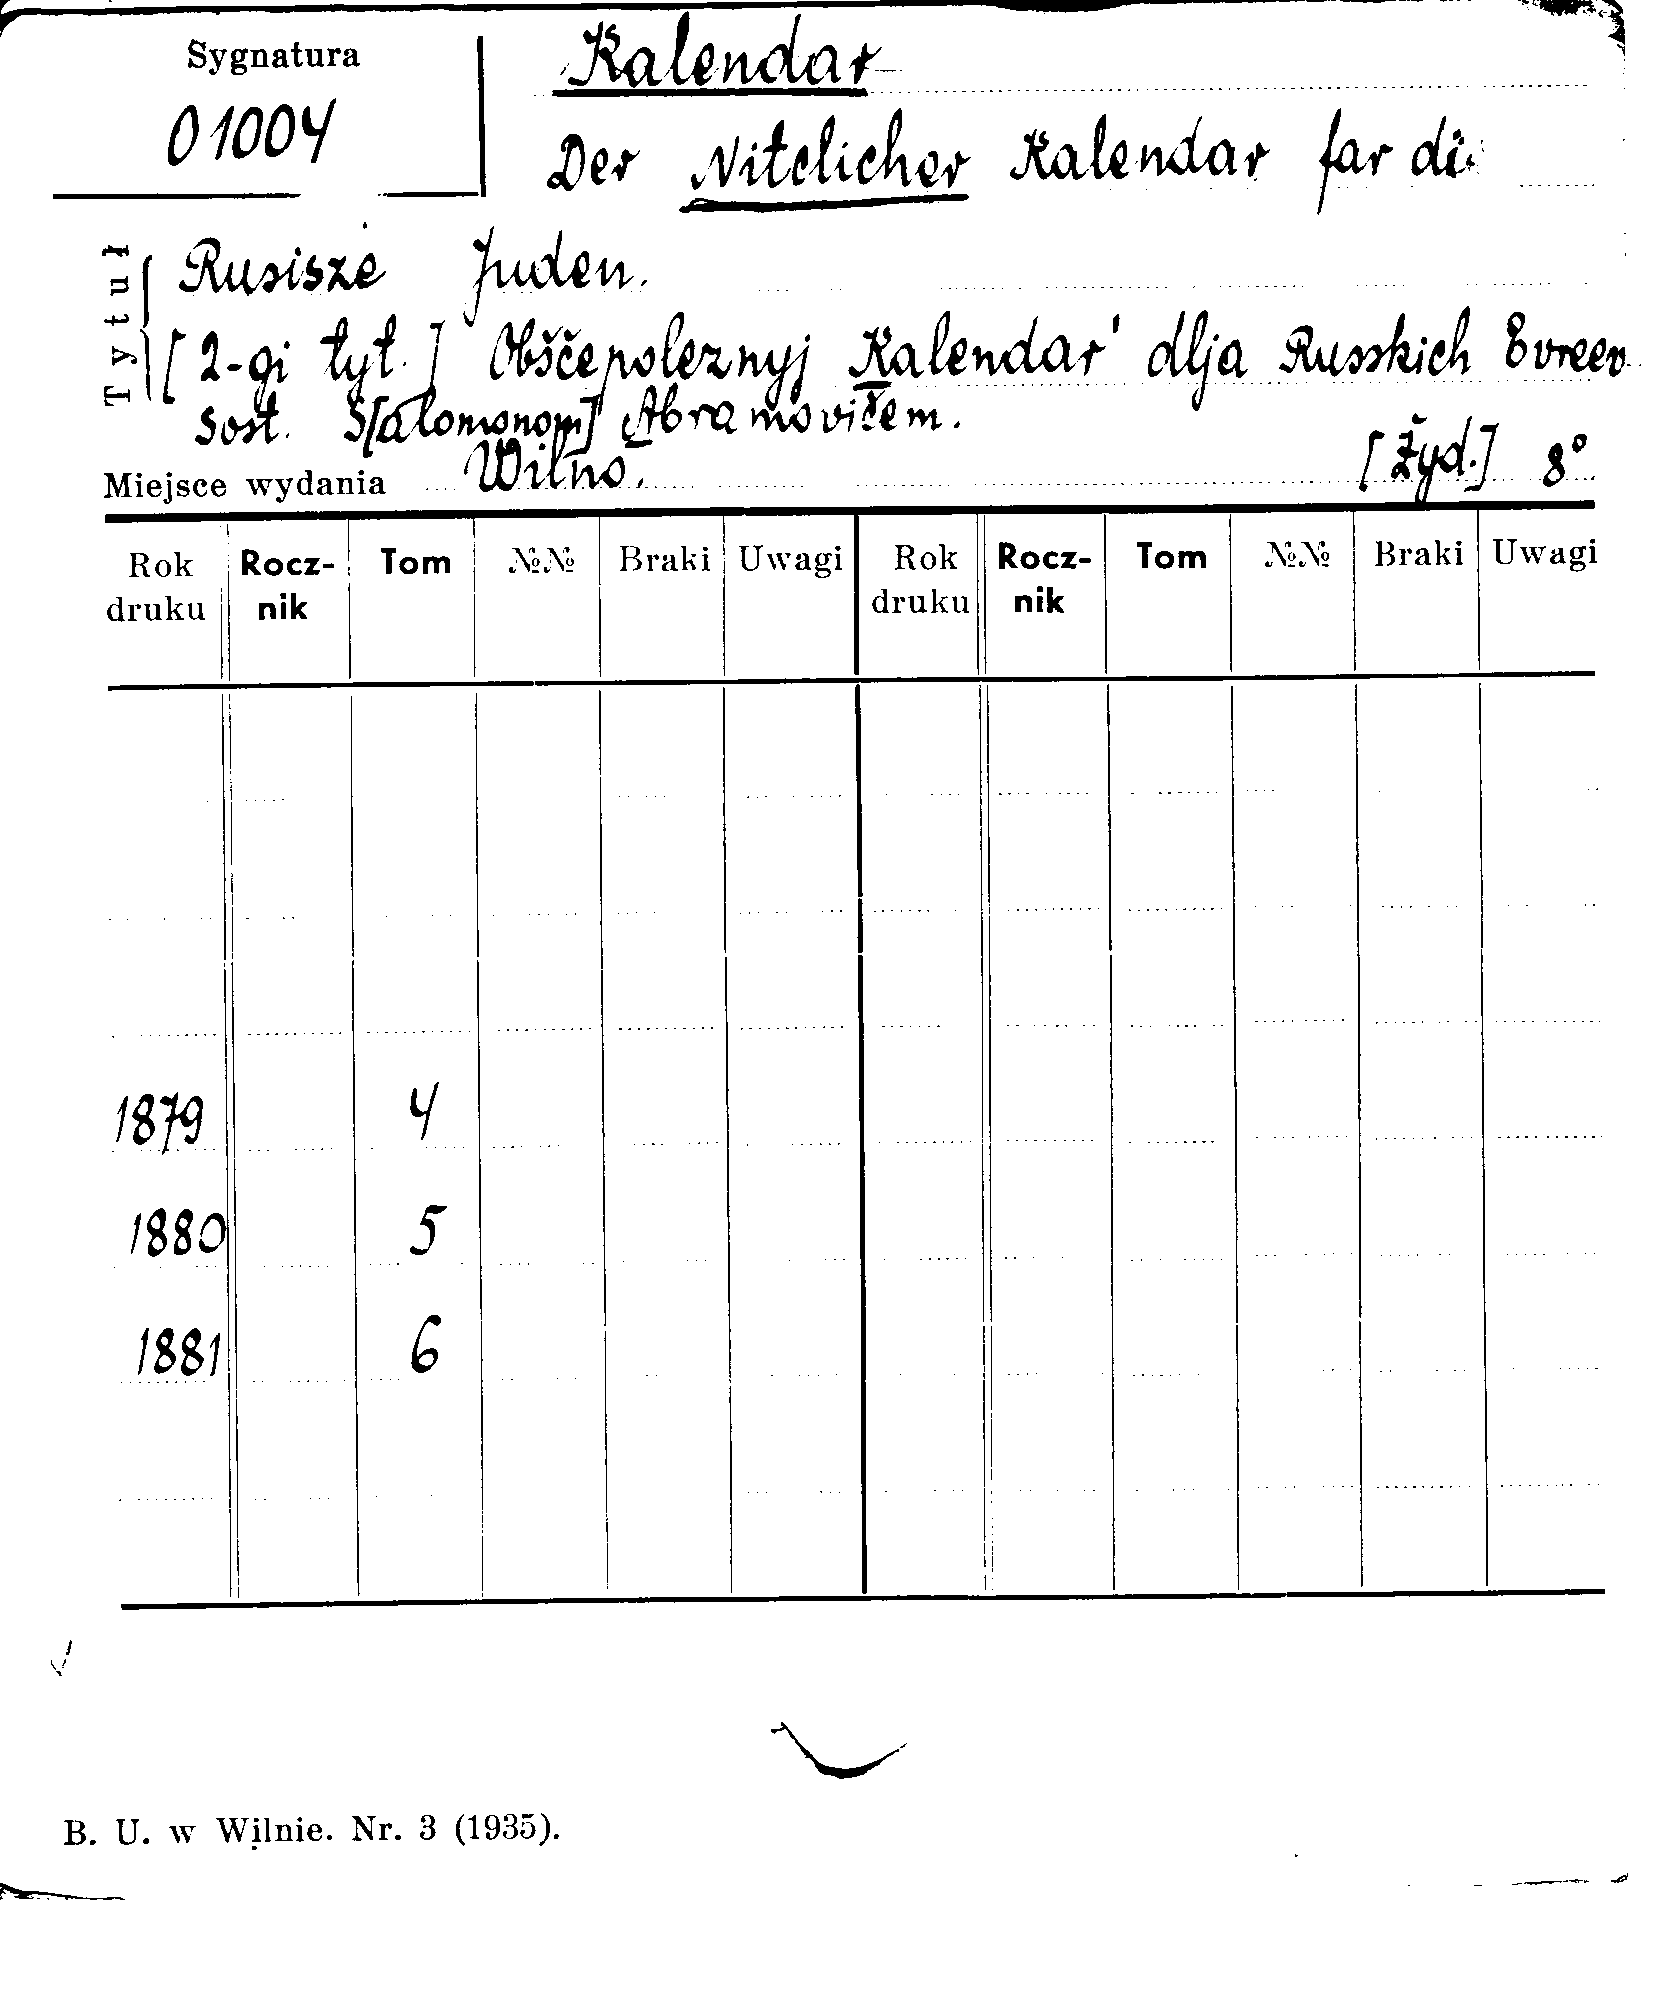 Sygnatura
01004
Kalendar
Der Nitclicher Kalendar far die
Tytuł
Rusisze Juden.
[2-gi tyt.] Obščepoleznyj Kalendar' dlja Russkich Evreev
sost. S[alomonom] Abramovičem.
Miejsce wydania Wilno. [Żyd.] 8°
Rok druku Rocz-nik Tom №№ Braki Uwagi Rok druku Rocz-nik Tom №№ Braki Uwagi
1879 4
1880 5
1881 6
B. U. w Wilnie. Nr. 3 (1935).